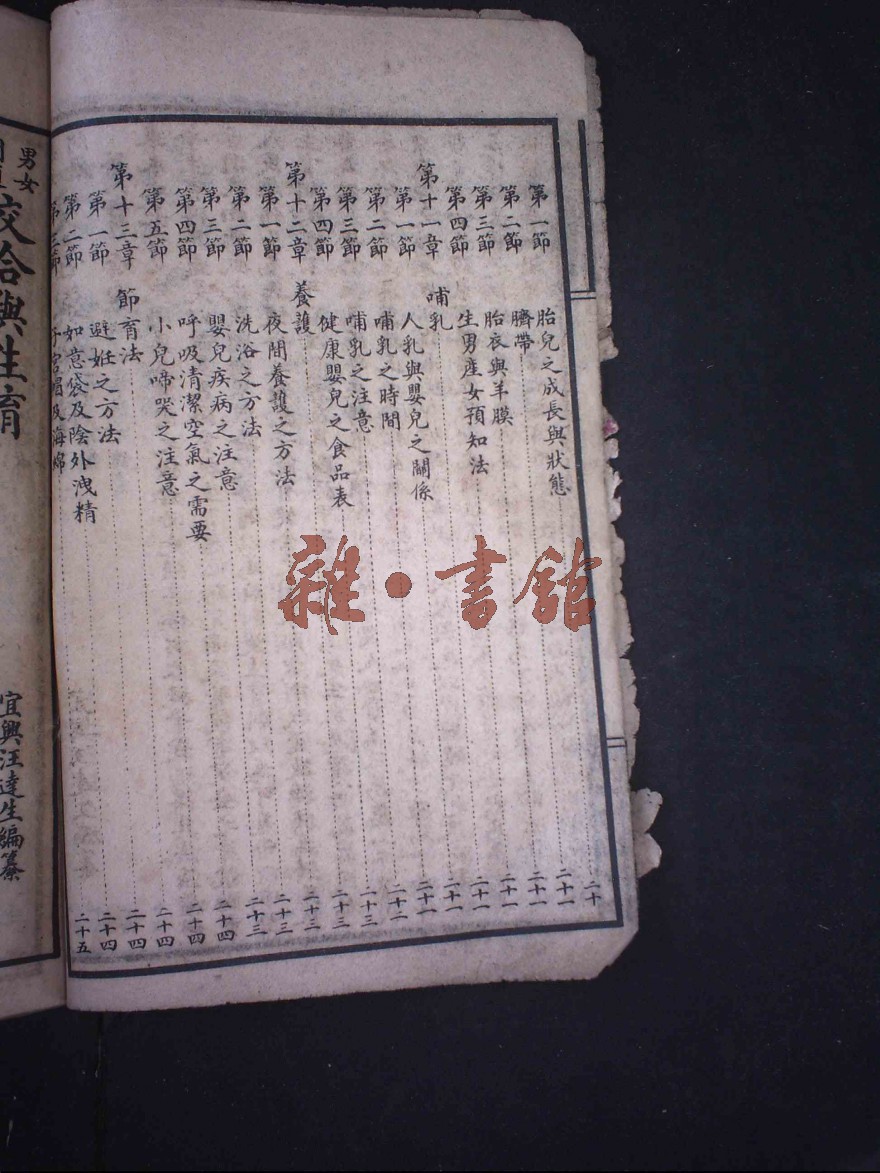 第一節 胎兒之成長與狀態 二十
第二節 臍帶 二十一
第三節 胎衣與羊膜 二十一
第四節 生男產女預知法 二十一
第十一章 哺乳 二十一
第一節 人乳與嬰兒之關係 二十一
第二節 哺乳之時間 二十一
第三節 哺乳之注意 二十二
第四節 健康嬰兒之食品表 二十三
第十二章 養護 二十三
第一節 夜間養護之方法 二十三
第二節 洗浴之方法 二十三
第三節 嬰兒疾病之注意 二十三
第四節 呼吸清潔空氣之需要 二十四
第五節 小兒啼哭之注意 二十四
第十三章 節育法 二十四
第一節 避妊之方法 二十四
第二節 如意袋及陰外洩精 二十四
第三節 子宮帽及海綿 二十五
男女
交合與生育
宜興汪達生編纂
雜·書館